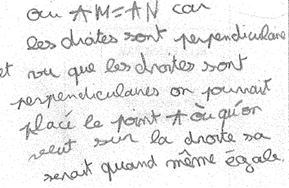 ou AM=AN car
les droites sont perpendiculaire
et vu que les droites sont
perpendiculaires on pourrait
placé le point A où qu'on
veut sur la droite sa
serait quand même égale.